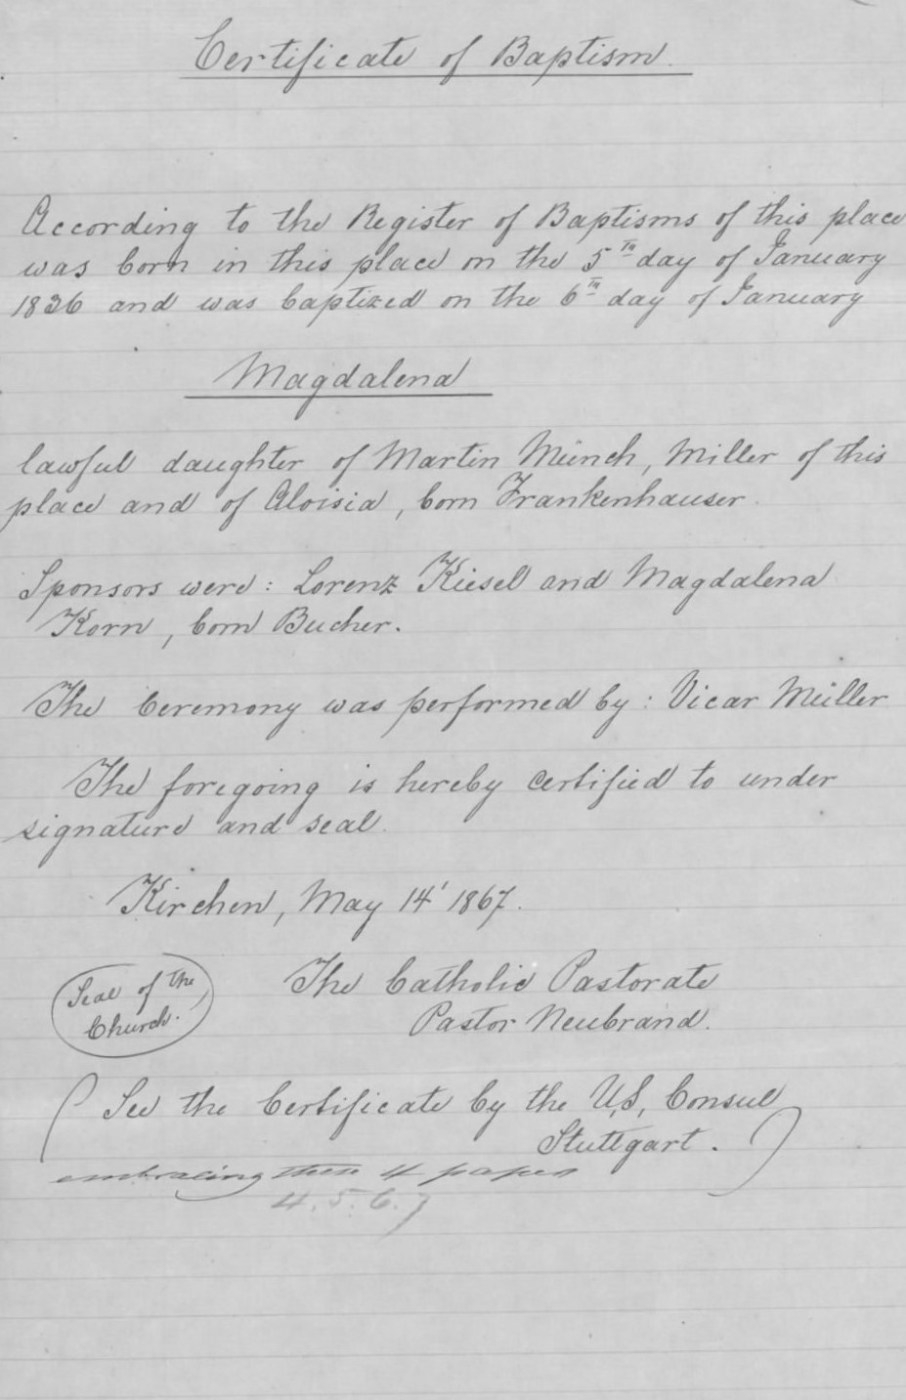 Certificate of Baptism.
According to the Register of Baptisms of this place
was born in this place on the 5th day of January
1836 and was baptized on the 6th day of January
Magdalena
lawful daughter of Martin Münch, Miller of this
place and of Aloisia, born Frankenhauser.
Sponsors were: Lorenz Kiesel and Magdalena
Korn, born Bucher.
The Ceremony was performed by: Vicar Müller
The foregoing is hereby certified to under
signature and seal.
Kirchen, May 14' 1867.
Seal of the
Church.
The Catholic Pastorate
Pastor Neubrand.
( See the Certificate by the U.S. Consul
Stuttgart. )
embracing these 4 papers
4. 5. 6. 7